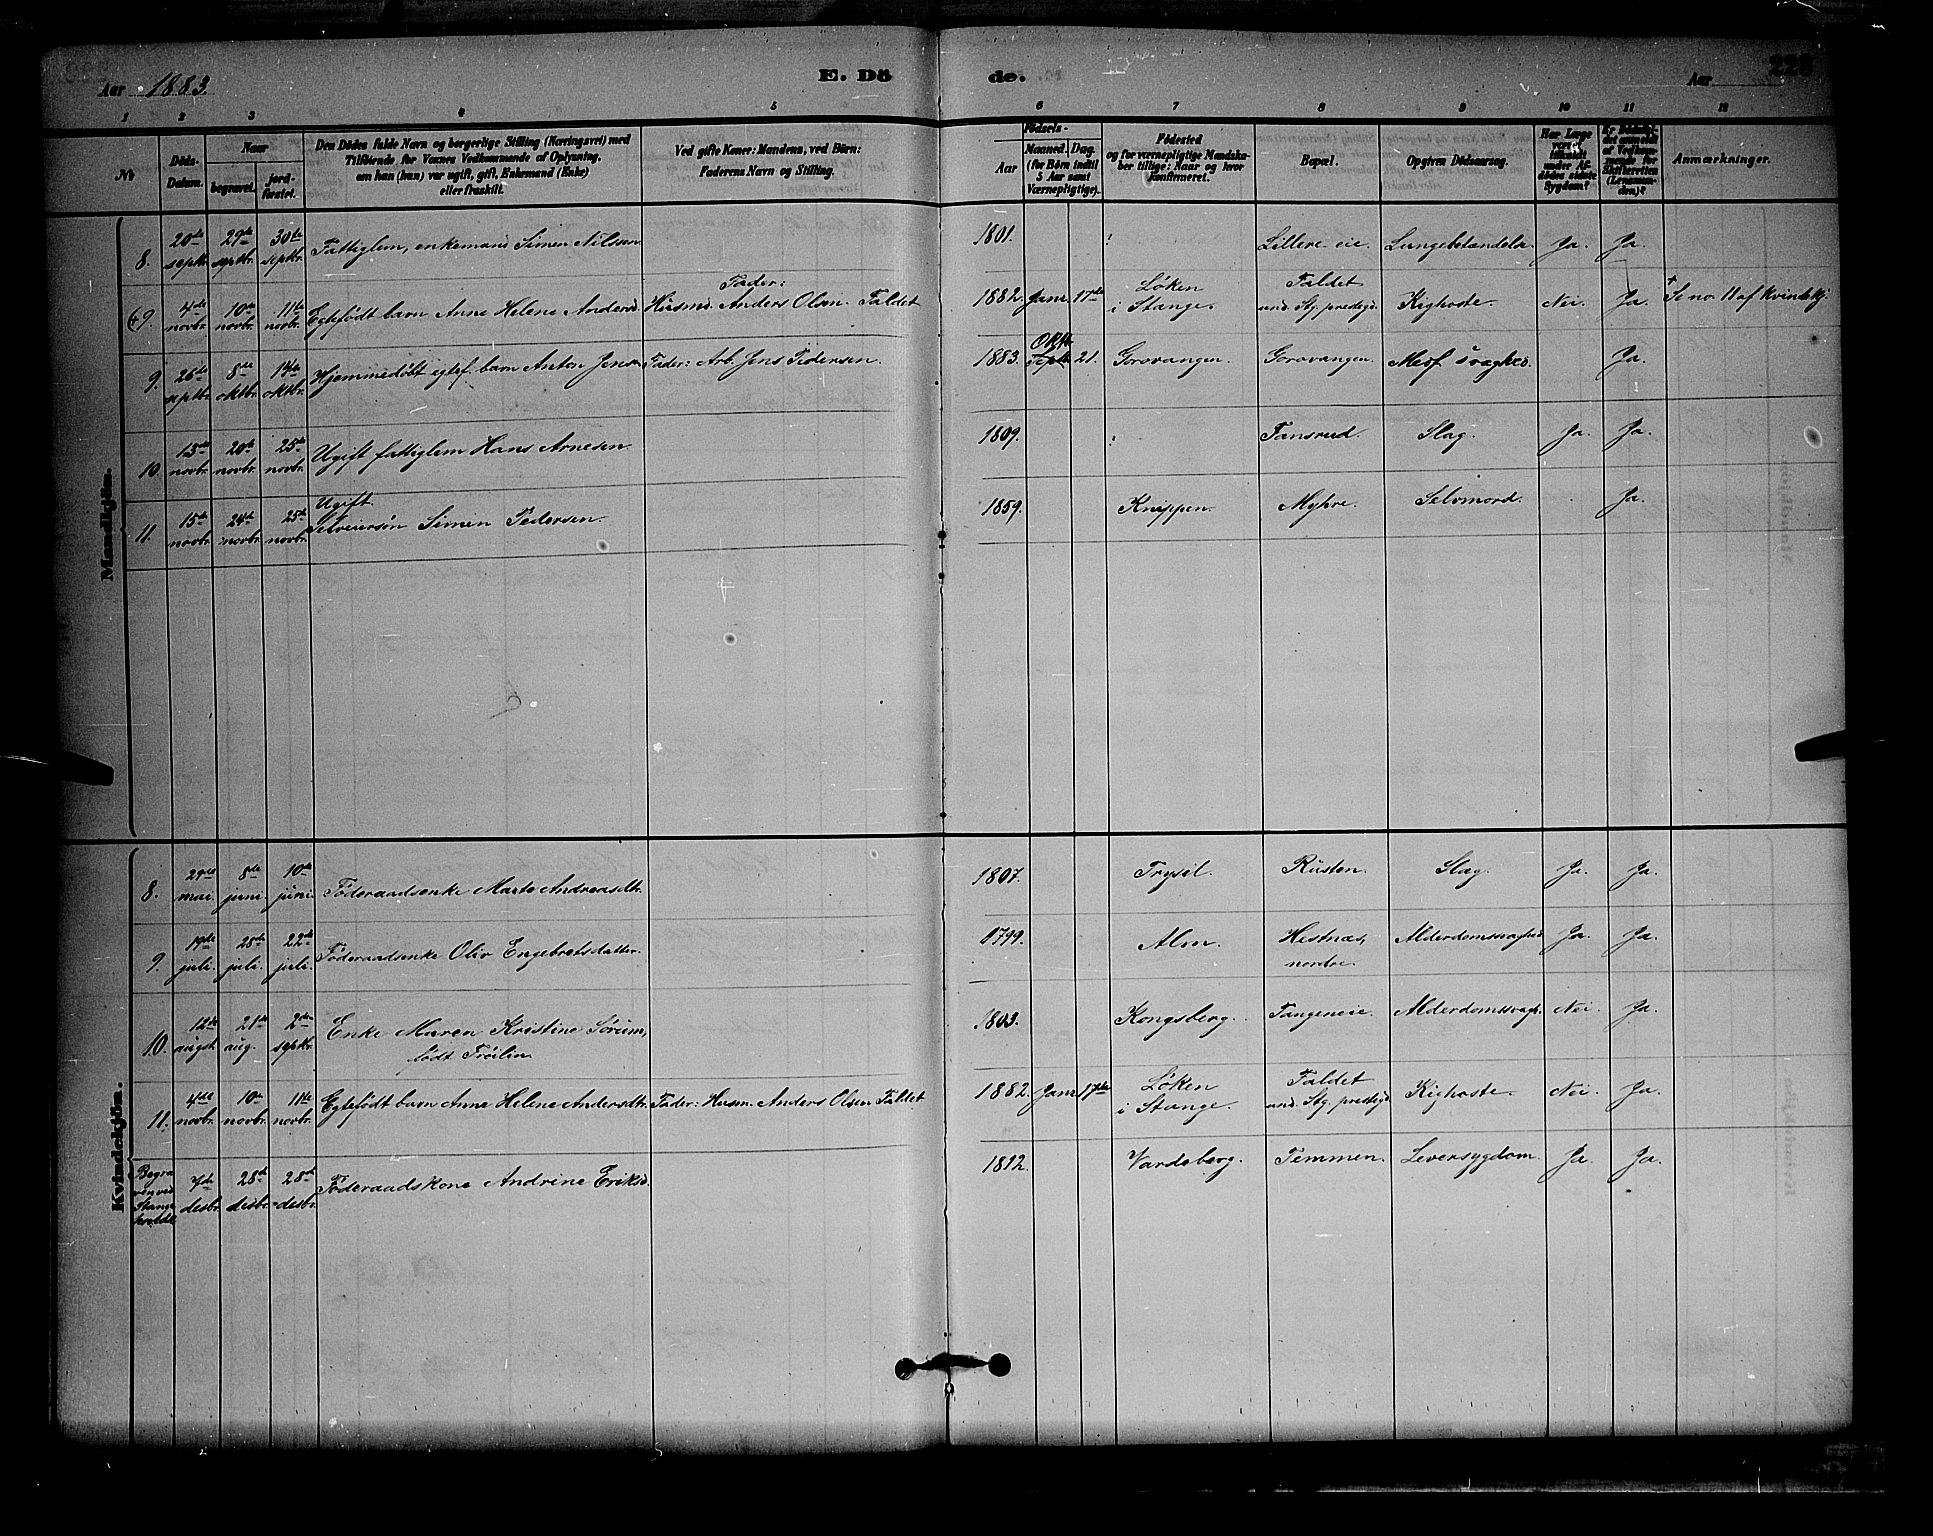 Aar 1883.
E. Dö de.
Aar
228
1 2 3 4 5 6 7 8 9 10 11 12
No
Döds-Datum.
Naar
begravet.
jordfæstet.
Den Dödes fulde Navn og borgerlige Stilling (Næringsvei) med
Tilföiende for Voxnes Vedkommende af Oplysning,
om han (hun) var ugift, gift, Enkemand (Enke)
eller fraskilt.
Ved gifte Koner: Mandens, ved Börn:
Faderens Navn og Stilling.
Födsels-
Aar
Maaned. Dag.
(for Börn indtil
5 Aar samt
Værnepligtige).
Födested
og for værnepligtige Mandska-
ber tillige: Naar og hvor
konfirmeret.
Bopæl.
Opgiven Dödsaarsag.
Har Læge
været
tilkaldt
under Af-
dödes sidste
Sygdom?
Er Dödsfal-
det anmeldt
af Vedkom-
mende for
Skifteretten
(Lensman-
den)?
Anmærkninger.
Mandkjön.
8. 20de septbr. 29de septbr. 30te septbr. Fattiglem, enkemand Simen Nilssen 1801. : Lillere eie. Lungebetændelse Ja. Ja.
(9. 4de novbr. 10de novbr. 11te novbr. Egtefødt barn Anne Helene Andersd. Fader: Husmd. Anders Olsen Faldet 1882. Janr. 17de Løken i Stange. Faldet und. Stg. prestegd. Kighoste. Nei. Ja. † Se no. 11 af kvindekj:
9. 26de septbr. 8de oktbr. 14de oktbr. Hjemmedøbt egtef. barn Anton Jensen Fader: Arb. Jens Pedersen. 1883. Septbr. 21. Gorovangen. Gorovangen. Medf. svaghed. Ja.
10. 13de novbr. 20de novbr. 25de novbr. Ugift fattiglem Hans Arnesen 1809. : Tansrud. Slag. Ja. Ja.
11. 15de novbr. 24de novbr. 25de novbr. Ugift Selveiersøn Simen Pedersen. 1859. Knippen. Myhre. Selvmord. Ja.
Kvindekjön.
8. 29de mai. 8de juni. 10de juni. Føderaadsenke Marte Andreasdtr. 1807. Trysil. Rusten. Slag. Ja. Ja.
9. juli. juli. 22de juli. Føderaadsenke Oliv Engebretsdatter. 1799. Alm. Hestnæs, nordre. Alderdomssvaghed Ja. Ja.
10. 12te augst. 21de aug. 2den septbr. Enke Maren Kristine Sørum, født Frøilin 1803. Kongsberg. Tangeneie. Alderdomssvagh. Nei. Ja.
11. 4de novbr. 10de novbr. 11te novbr. Egtefødt barn Anne Helene Andersdtr. Fader: Husm. Anders Olsen Faldet 1882 Janr. 17de Løken i Stange. Faldet und. Stg. prestegd. Kighoste. Nei. Ja.
Begraven ved Stange 7de desbr. 28de desbr. 28de desbr. Føderaadskone Andrine Eriksd. 1812. Vardeberg. Temmen. Leversygdom. Ja. Ja.